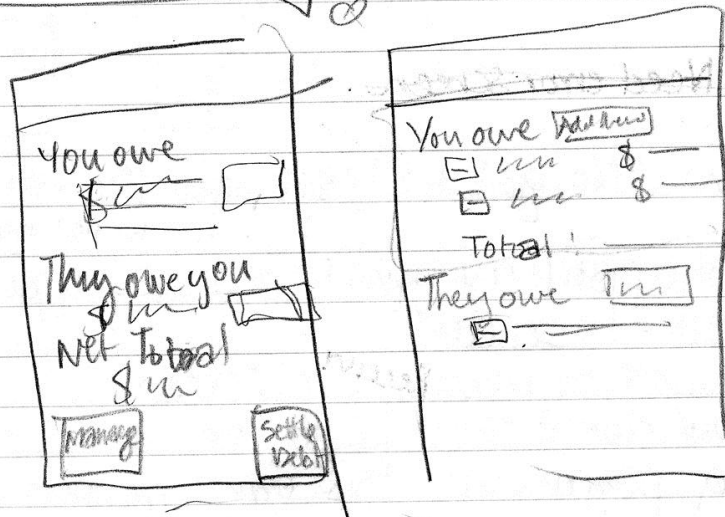 You owe
$
They owe you
$
Net Total
$
Manage
Settle
Debt
You owe
$
$
Total:
They owe